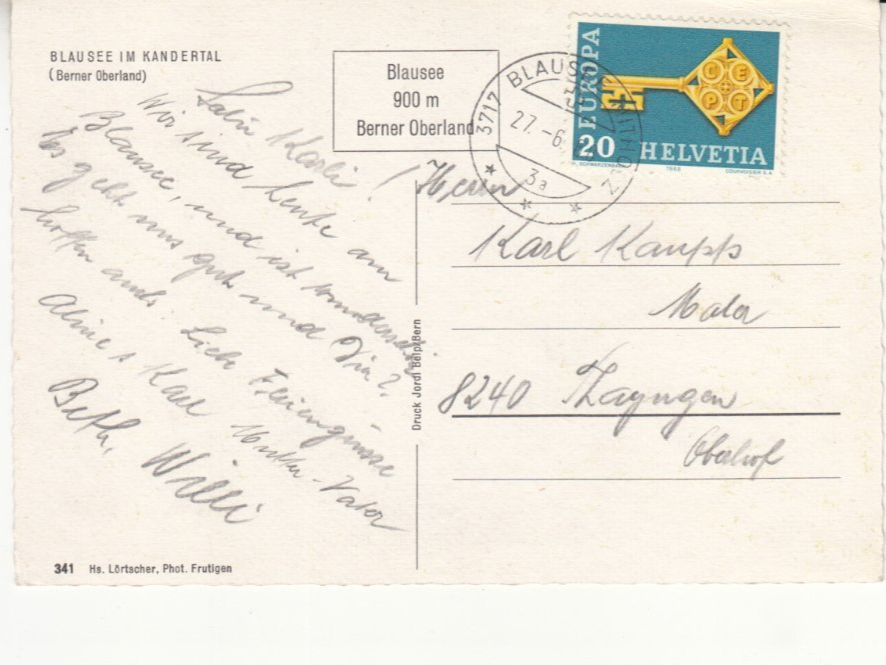 BLAUSEE IM KANDERTAL
(Berner Oberland)
Salü Karli!
Wir sind heute am
Blausee, und ist wunderschön
Es geht uns gut und Dir?
hoffen auch. Liebe Feriengrüsse
Karl Mutter - Vater
Beth, Willi
341 Hs. Lörtscher, Phot. Frutigen
Druck Jordi Belp/Bern
Blausee
900 m
Berner Oberland
3717 BLAUSEE-MITHOLZ
27.-6.
3a
EUROPA
CEPT
20 HELVETIA
1968
COURVOISIER S.A.
Herrn
Karl Kaupp
Maler
8240 Thayngen
Oberhof